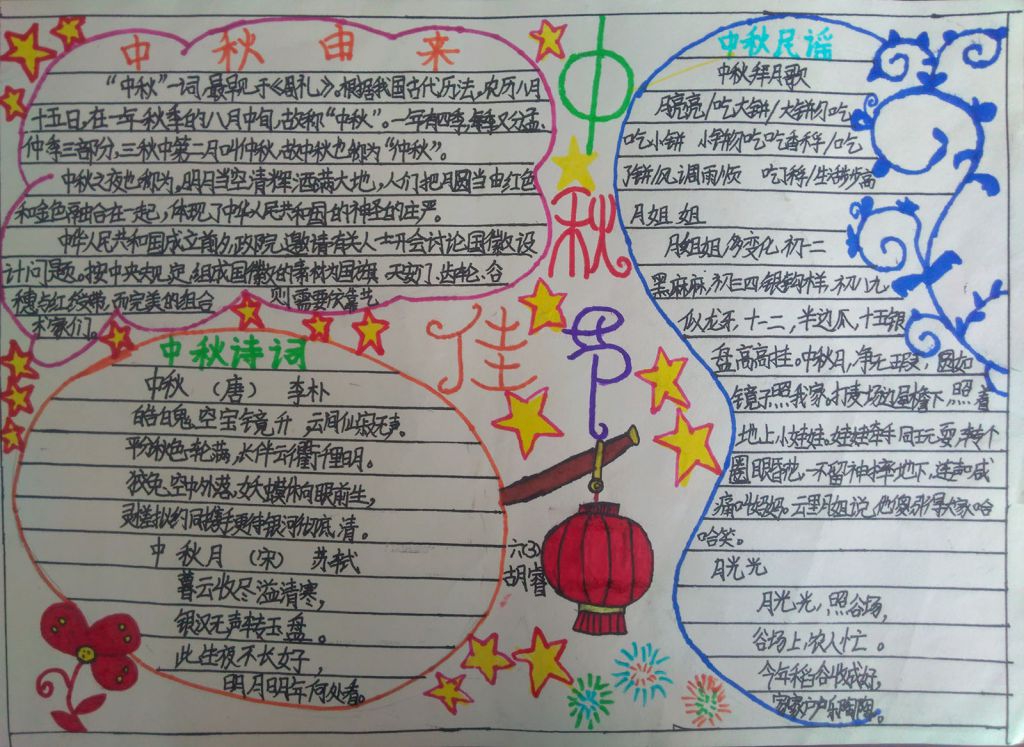 中秋由来
“中秋”一词,最早见于《周礼》,根据我国古代历法,农历八月
十五日,在一年秋季的八月中旬,故称“中秋”。一年有四季,每季又分孟、
仲季三部分,三秋中第二月叫仲秋,故中秋也称为“仲秋”。
中秋之夜也称为,明月当空清辉洒满大地,人们把月圆当由红色
和金色融合在一起,体现了中华人民共和国的神圣的庄严。
中华人民共和国成立前夕,政院邀请有关人士开会讨论国徽设
计问题。按中央规定,组成国徽的素材为国旗 天安门、齿轮、谷
穗与红绶带,而完美的组合 则需要依靠艺
术家们。
中秋佳节
中秋诗词
中秋 (唐) 李朴
皓魄空宝镜升 云间仙寂无声。
平分秋色一轮满,长伴云衢千里明。
狡兔空中外落,妖蟆休向眼前生,
灵槎拟约同携手更待银河彻底清。
中秋月 (宋) 苏轼
暮云收尽溢清寒,
银汉无声转玉盘。
此生夜不长好,
明月明年何处看。
六(3)
胡睿
中秋民谣
中秋拜月歌
月亮亮/吃大饼/大饼吃
吃小饼 小饼吃吃香稃/吃
了饼/风调雨/顺 吃了稃/生活步步高
月姐姐
月姐姐,多变化,初一二
黑麻麻,初三四银钩样,初八九
似龙牙,十一二,半边瓜,十五银
盘高高挂。中秋月,净无瑕,圆如
镜子照我家,打麦场边屋檐下,照着
地上小娃娃,娃娃牵手同玩耍,转个
圈眼昏花,一不留神摔地下,连声喊
痛叫妈妈,云里月姐说他傻,引得大家哈
哈笑。
月光光
月光光,照谷场,
谷场上,农人忙。
今年稻谷收成好,
家家户户乐陶陶。